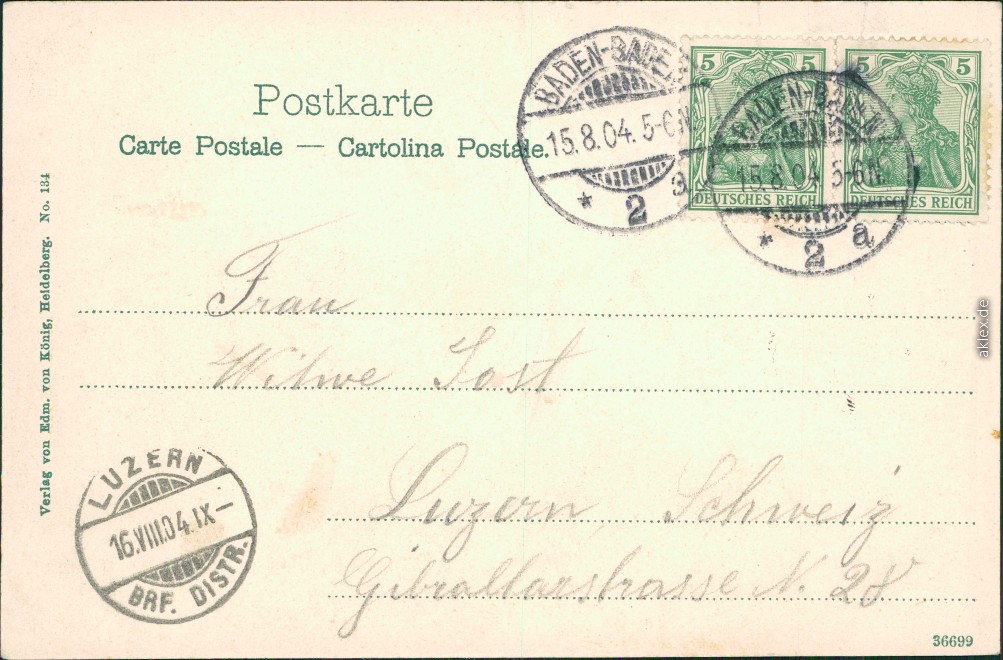 Postkarte
Carte Postale — Cartolina Postale.
BADEN-BADEN
15.8.04. 5-6N.
* 2 a
BADEN-BADEN
15.8.04 5-6N.
* 2 a
5 5
DEUTSCHES REICH
5 5
DEUTSCHES REICH
Frau
Witwe Jost
Luzern Schweiz
Gibraltarstrasse N. 28
LUZERN
16.VIII.04.IX—
BRF. DISTR.
Verlag von Edm. von König, Heidelberg. No. 134
36699
aklex.de